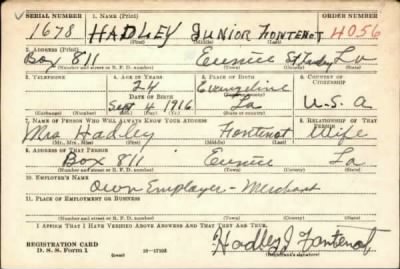 SERIAL NUMBER 1. NAME (Print) ORDER NUMBER
1678 HADLEY JUNIOR FONTENOT 4056
(First) (Middle) (Last)
2. ADDRESS (Print)
Box 811 Eunice St Landry La
(Number and street or R. F. D. number) (Town) (County) (State)
3. TELEPHONE 4. AGE IN YEARS 5. PLACE OF BIRTH 6. COUNTRY OF CITIZENSHIP
24 Evangeline
DATE OF BIRTH (Town or county)
Sept 4 1916 La U.S.A
(Exchange) (Number) (Mo.) (Day) (Yr.) (State or country)
7. NAME OF PERSON WHO WILL ALWAYS KNOW YOUR ADDRESS 8. RELATIONSHIP OF THAT PERSON
Mrs Hadley Fontenot Wife
(Mr., Mrs., Miss) (First) (Middle) (Last)
9. ADDRESS OF THAT PERSON
Box 811 Eunice La
(Number and street or R. F. D. number) (Town) (County) (State)
10. EMPLOYER'S NAME
Own Employer - Merchant
11. PLACE OF EMPLOYMENT OR BUSINESS
(Number and street or R. F. D. number) (Town) (County) (State)
I AFFIRM THAT I HAVE VERIFIED ABOVE ANSWERS AND THAT THEY ARE TRUE.
REGISTRATION CARD
D. S. S. Form 1 16—17105 Hadley J Fontenot
(Registrant's signature)